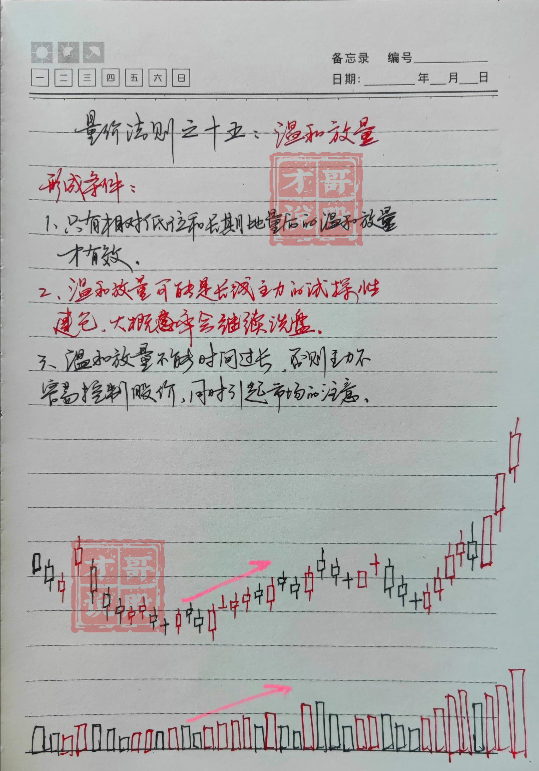 备忘录 编号
一 二 三 四 五 六 日
日期: 年 月 日
量价法则之十五:温和放量
形成条件:
1、只有相对低位和长期地量后的温和放量
才有效。
2、温和放量可能是长线主力的试探性
建仓,大概率会继续洗盘。
3、温和放量不能时间过长,否则主力不
容易控制股价,同时引起市场的注意。
才哥
说股
才哥
说股